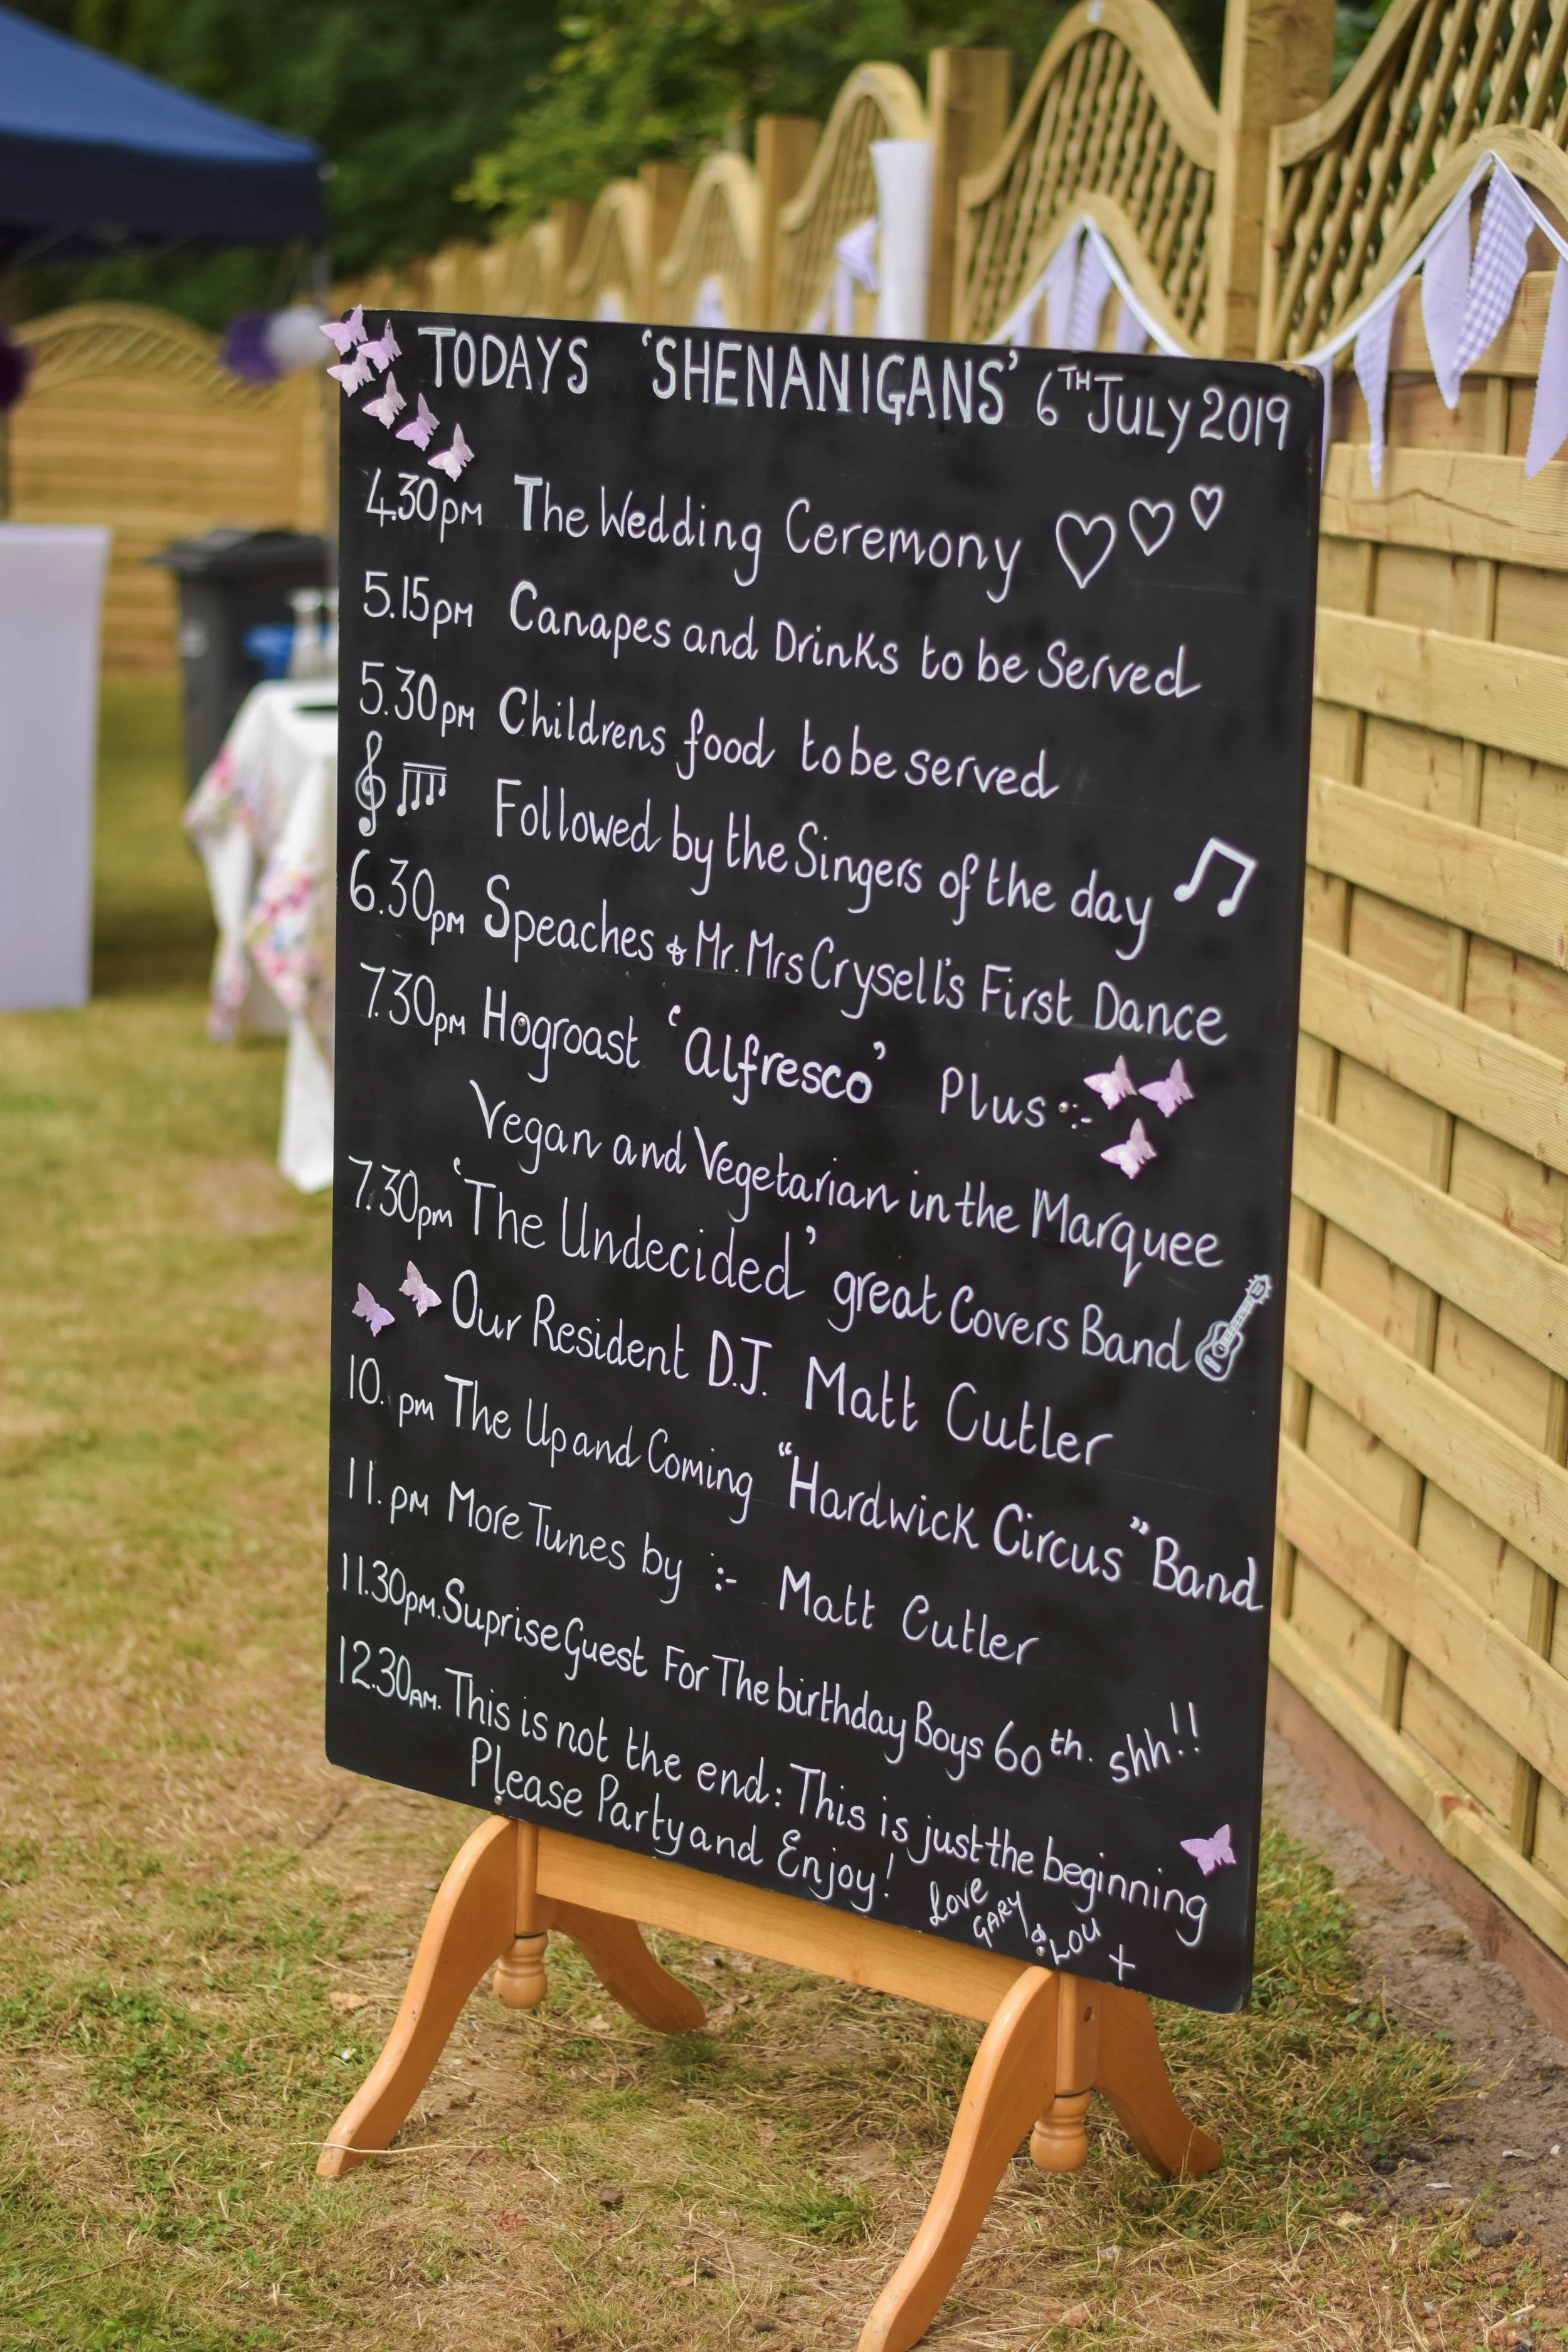 TODAYS 'SHENANIGANS' 6TH JULY 2019
4.30PM The Wedding Ceremony
5.15PM Canapes and Drinks to be Served
5.30PM Childrens food to be served
Followed by the Singers of the day
6.30PM Speaches & Mr. Mrs Crysell's First Dance
7.30PM Hogroast 'Alfresco' Plus :-
Vegan and Vegetarian in the Marquee
7.30pm 'The Undecided' great Covers Band
Our Resident D.J. Matt Cutler
10. pm The Up and Coming "Hardwick Circus" Band
11. PM More Tunes by :- Matt Cutler
11.30PM. Suprise Guest For The birthday Boys 60th. shh!!
12.30AM. This is not the end: This is just the beginning
Please Party and Enjoy!
Love
GARY
& LOU +